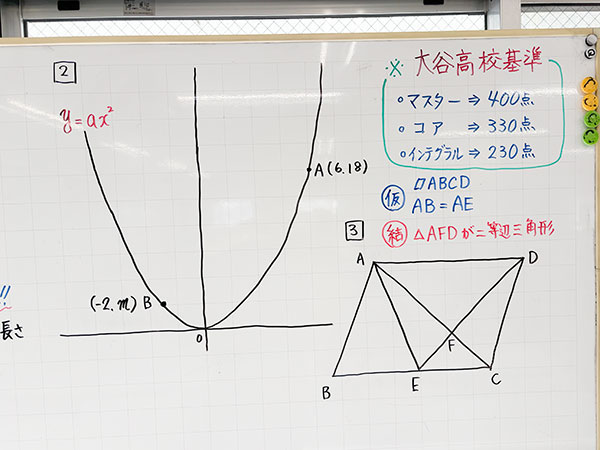 2
y=ax²
A(6.18)
(-2.m) B
O
!!
長さ
※ 大谷高校基準
○マスター⇒400点
○コア⇒330点
○インテグラル⇒230点
仮 ▱ABCD
AB=AE
結 △AFDが二等辺三角形
3
A D
F
B E C